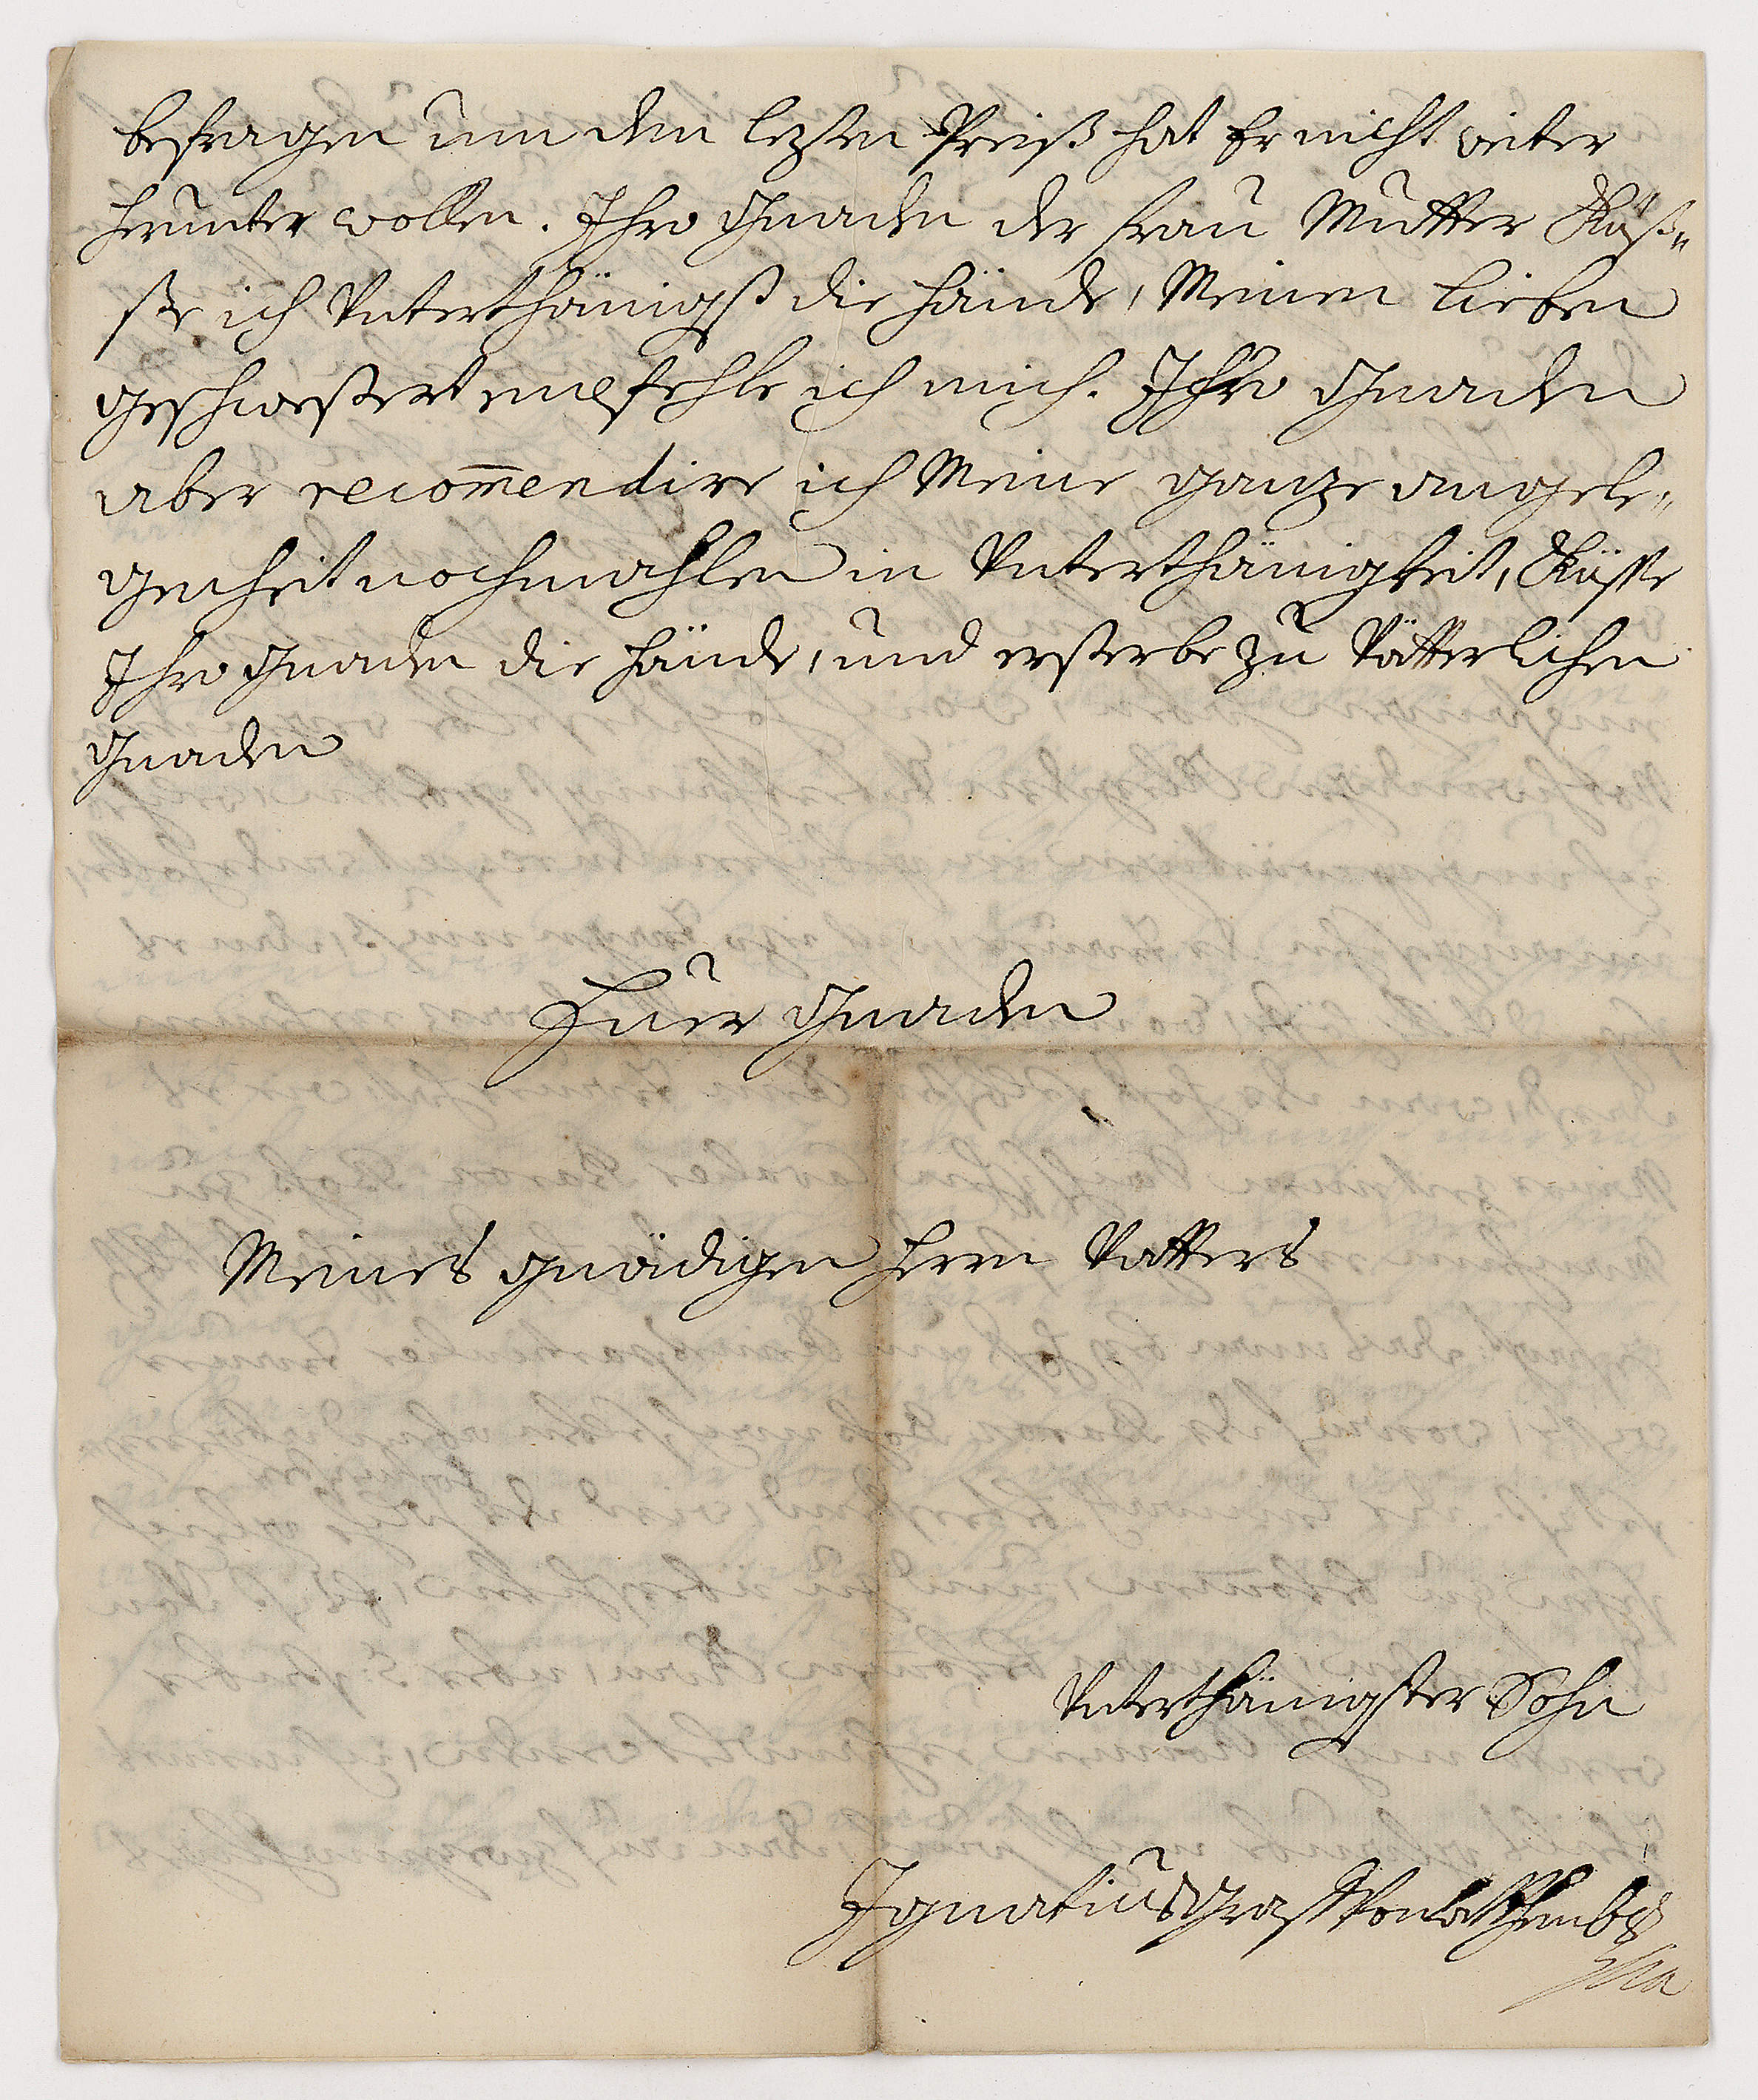 befragen um den lezten Preiß hat Er nicht weiter
herunter wollen. Ihro Gnaden der Frau Mutter Küß„
ße ich Unterthänigst die Hände, Meinen lieben
geschwestert empfehle ich mich. Ihro Gnaden
aber recom̅endire ich Meine ganze angele„
genheit nochmahlen in Unterthänigkeit, Küsse
Ihro Gnaden die Hände, und ersterbe zu Vätterlichen
Gnaden
Euer Gnaden
Meines gnädigen Herrn Vatters
Unterthänigster Sohn
Ignatius Graff Von